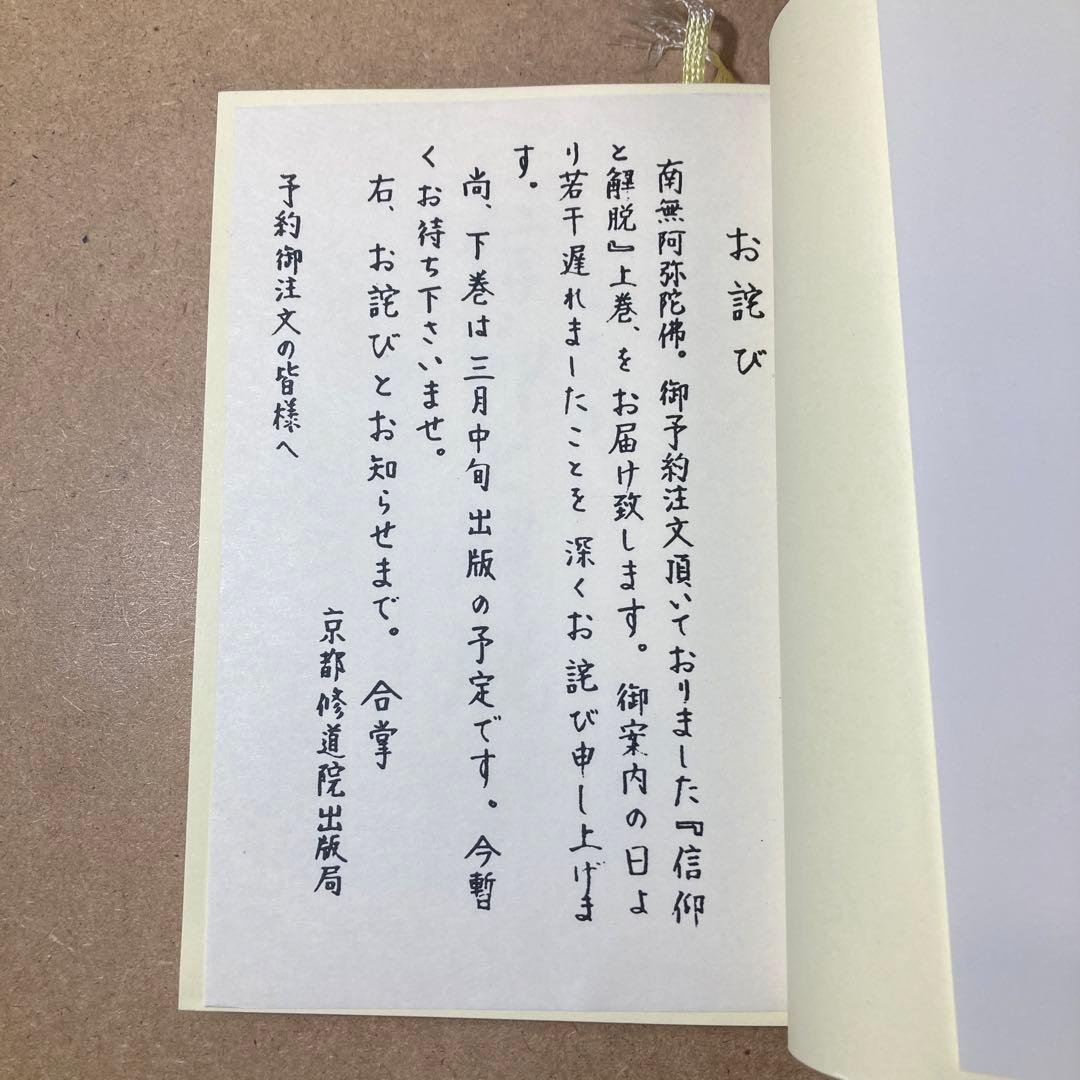 お詫び
南無阿弥陀佛。御予約注文頂いておりました『信仰
と解脱』上巻、をお届け致します。御案内の日よ
り若干遅れましたことを深くお詫び申し上げま
す。
尚、下巻は三月中旬出版の予定です。今暫
くお待ち下さいませ。
右、お詫びとお知らせまで。合掌
京都修道院出版局
予約御注文の皆様へ